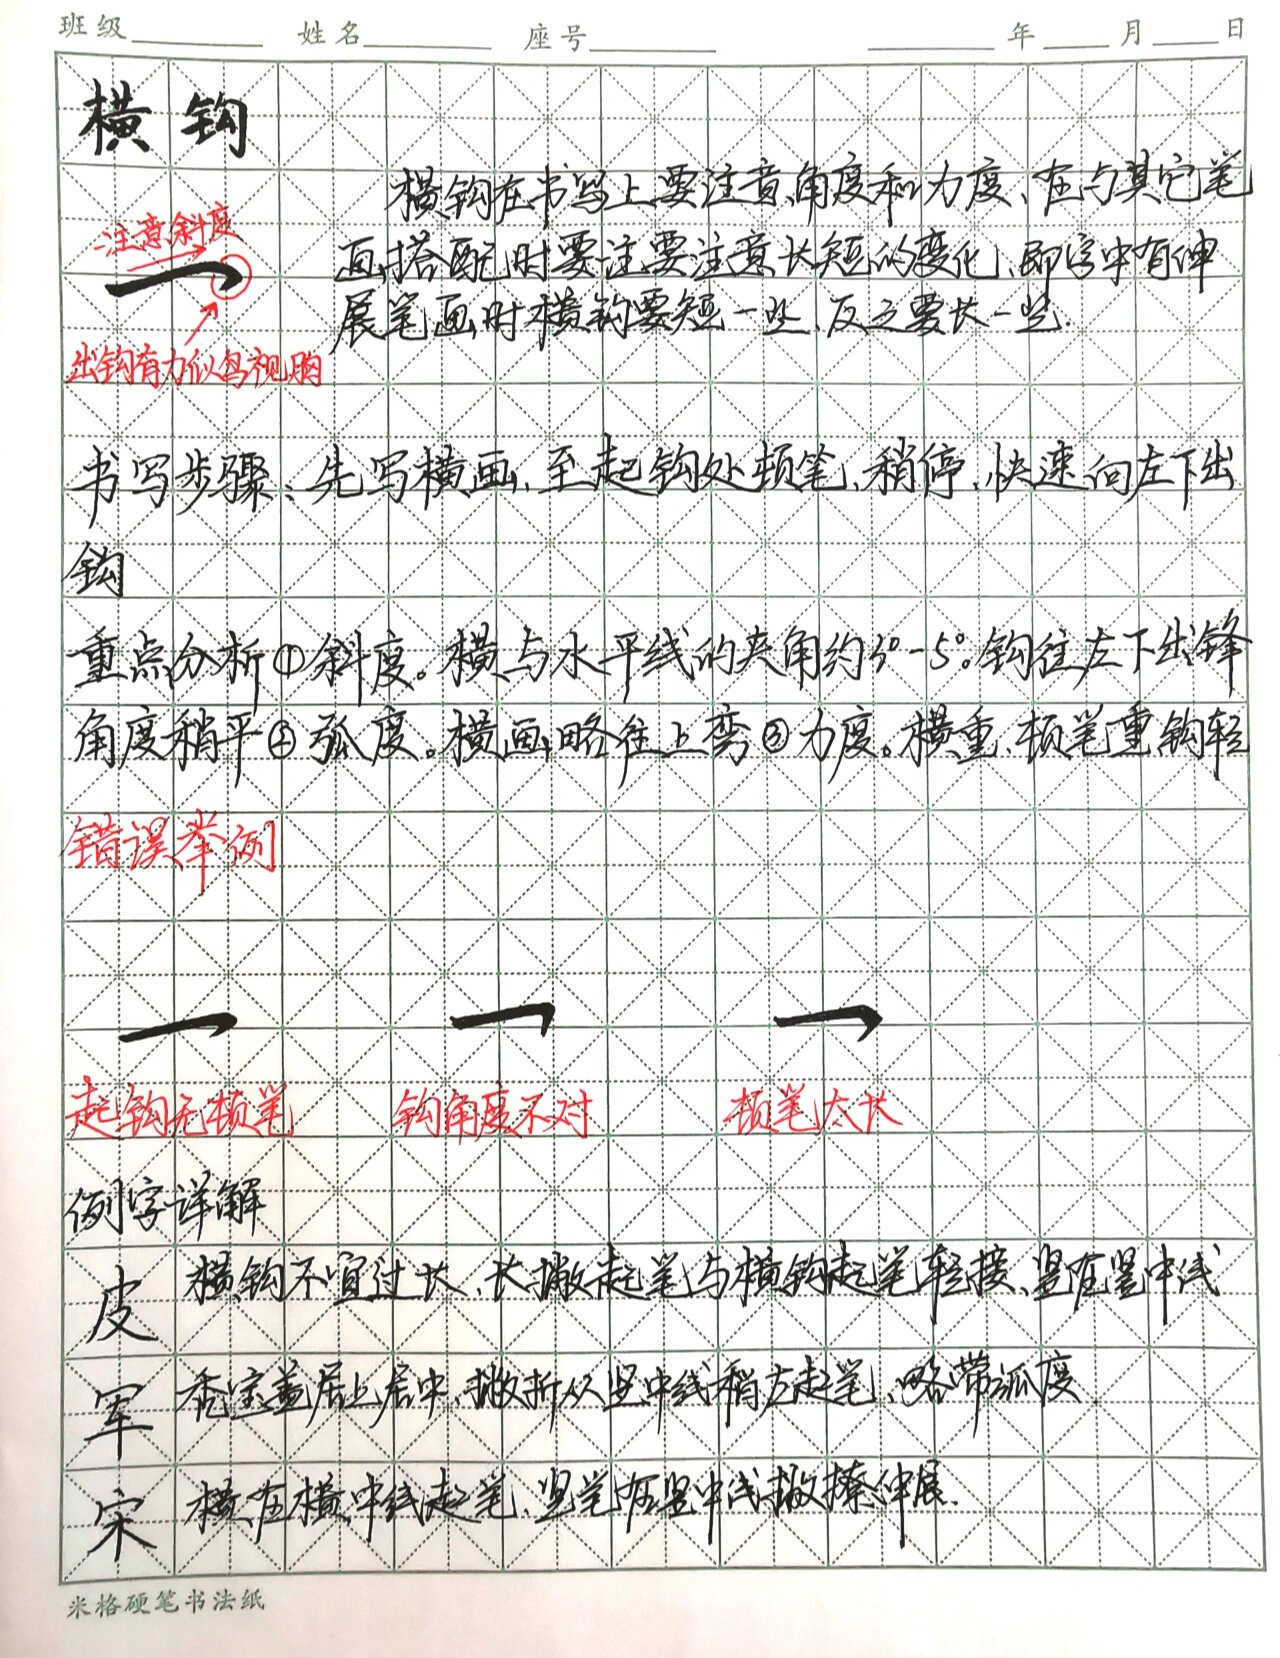 班级 姓名 座号 年 月 日
横钩
横钩在书写上要注意角度和力度、在与其它笔
注意斜度
画搭配时要注要注意长短的变化、即字中有伸
展笔画时横钩要短一些、反之要长一些.
出钩有力似鸟视胸
书写步骤、先写横画、至起钩处顿笔、稍停、快速向左下出
钩
重点分析①斜度。横与水平线的夹角约3°-5°。钩往左下出锋
角度稍平②弧度。横画略往上弯③力度。横重、顿笔重钩轻
错误举例
起钩无顿笔 钩角度不对 顿笔太长
例字详解
皮 横钩不宜过长、长撇起笔与横钩起笔轻接、竖在竖中线
军 秃宝盖居上居中、撇折从竖中线稍左起笔、略带弧度
宋 横在横中线起笔、竖笔在竖中线撇捺伸展.
米格硬笔书法纸